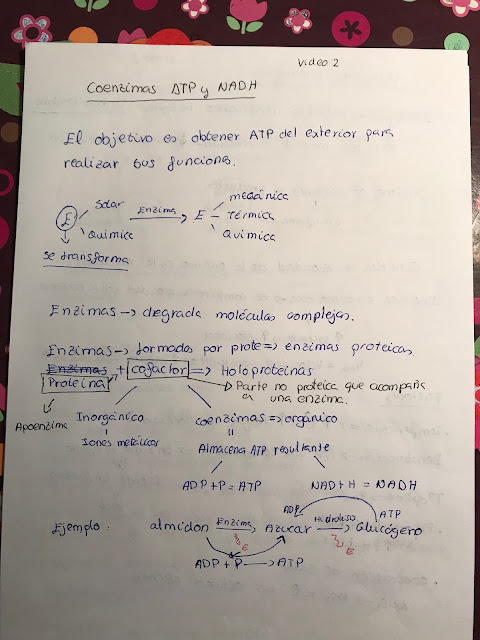 Video 2
Coenzimas ATP y NADH
El objetivo es obtener ATP del exterior para
realizar sus funciones.
E Solar Química Enzima → E mecánica Térmica Química
se transforma
Enzimas → degrada moléculas complejas.
Enzimas → formadas por prote ⇒ enzimas proteicas.
Enzimas + cofactor ⇒ Holoproteinas
Proteina
Parte no proteica que acompaña
a una enzima.
Apoenzima
Inorgánico coenzimas ⇒ orgánico
Iones metálicos Almacena ATP resultante
ADP + P = ATP NAD + H = NADH
ADP ATP
Ejemplo: almidon Enzima → Azúcar Hidrolisis → Glucógeno
E E
ADP + P → ATP